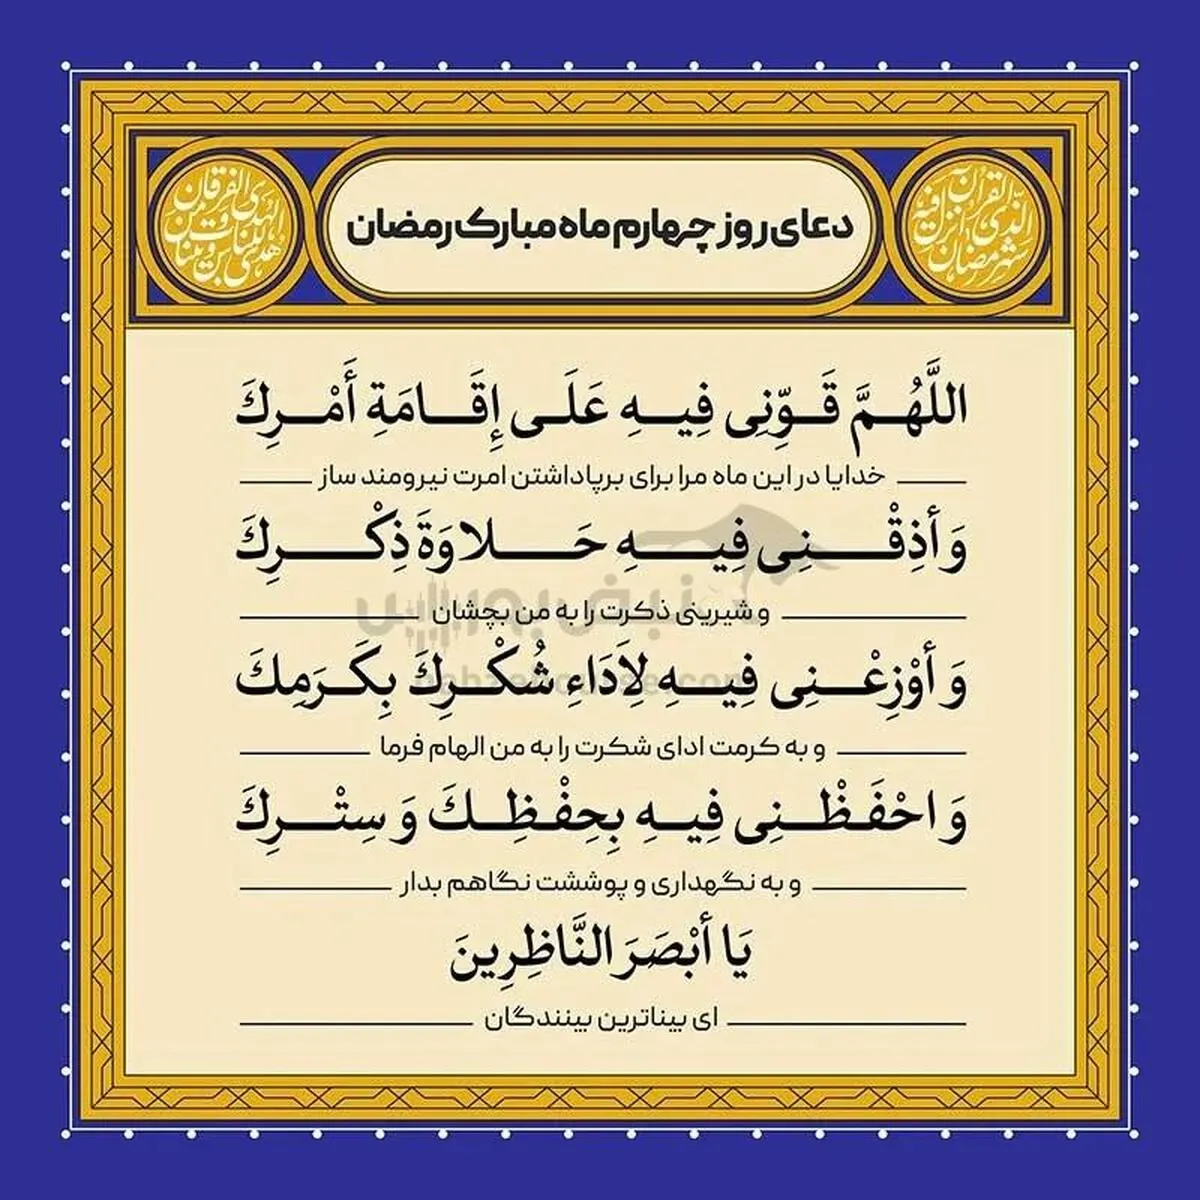 دعای روز چهارم ماه مبارک رمضان
شهر رمضان الذی أنزل فیه القرآن
هدی للناس و بینات من الهدی و الفرقان
اللَّهُمَّ قَوِّنِی فِیهِ عَلَی إِقَامَةِ أَمْرِكَ
خدایا در این ماه مرا برای برپاداشتن امرت نیرومند ساز
وَ أَذِقْنِی فِیهِ حَلاوَةَ ذِكْرِكَ
و شیرینی ذکرت را به من بچشان
وَ أَوْزِعْنِی فِیهِ لِأَدَاءِ شُكْرِكَ بِكَرَمِكَ
و به کرمت ادای شکرت را به من الهام فرما
وَ احْفَظْنِی فِیهِ بِحِفْظِكَ وَ سِتْرِكَ
و به نگهداری و پوششت نگاهم بدار
یَا أَبْصَرَ النَّاظِرِینَ
ای بیناترین بینندگان
نبض بورس
nabzebourse.com